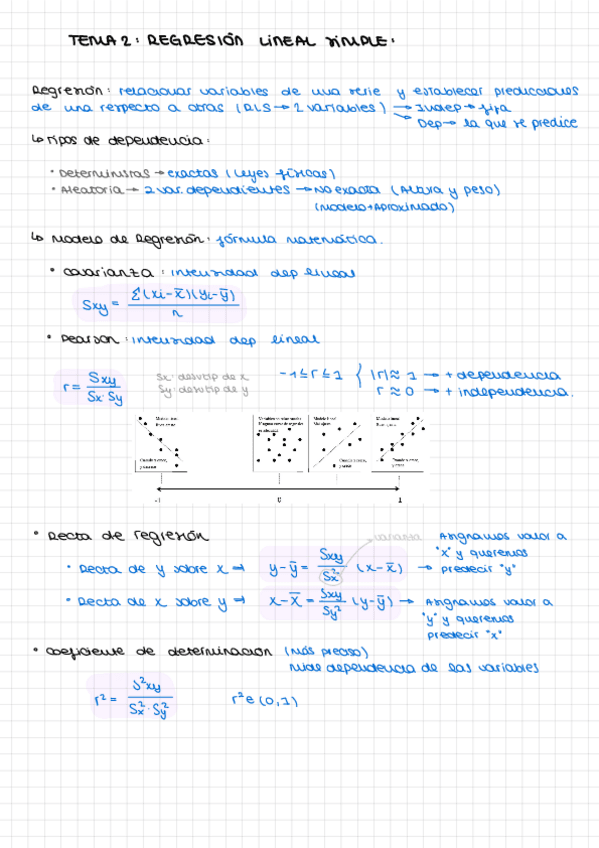 TEMA 2: REGRESIÓN LINEAL SIMPLE:
Regresión: relacionar variables de una serie y establecer predicciones
de una respecto a otras (RLS → 2 variables) → Indep → fija
→ Dep → la que se predice
↳ Tipos de dependencia:
• Deterministas → exactas (leyes físicas)
• Aleatoria → 2 var. dependientes → No exacta (Altura y peso)
(Modelo + Aproximado)
↳ Modelo de Regresión: fórmula matemática.
• Covarianza: intensidad dep lineal
Sxy = Σ(xi-x̄)(yi-ȳ) / n
• Pearson: intensidad dep lineal
r = Sxy / Sx·Sy
Sx: desv tip de x
Sy: desv tip de y
-1 ≤ r ≤ 1 { |r| ≈ 1 → + dependencia
r ≈ 0 → + independencia.
-1 0 1
• Recta de regresión
varianza
Asignamos valor a
"x" y queremos
predecir "y"
• Recta de y sobre x ⇒ y-ȳ = Sxy / Sx² (x-x̄) →
• Recta de x sobre y ⇒ x-x̄ = Sxy / Sy² (y-ȳ) → Asignamos valor a
"y" y queremos
predecir "x"
• Coeficiente de determinación (Más preciso)
Mide dependencia de las variables
r² = S²xy / Sx²·Sy²
r² e (0,1)